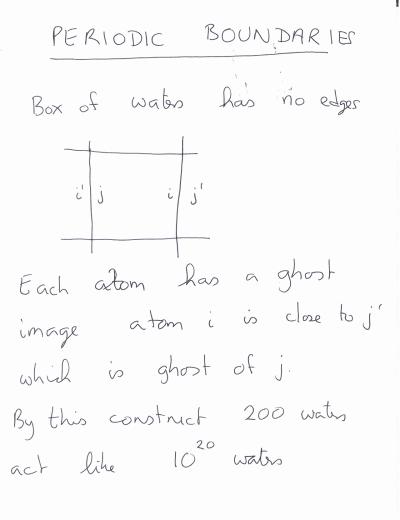 PERIODIC BOUNDARIES
Box of waters has no edges
i' j i j'
Each atom has a ghost
image atom i is close to j'
which is ghost of j.
By this construct 200 waters
act like 10²⁰ waters